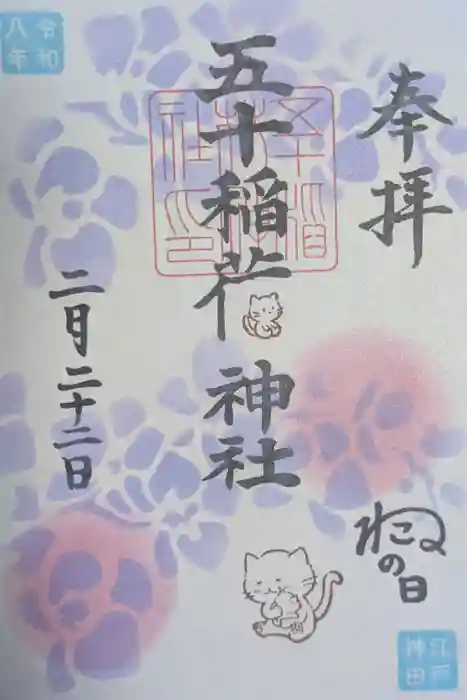 奉拝
五十稲荷神社
令和
八年
二月二十二日
ねこの日
江戸
神田